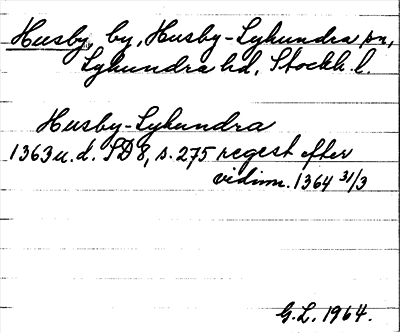 Husby, by, Husby-Lyhundra sn,
Lyhundra hd, Stockh. l.
Husby-Lyhundra
1363 u. d. SD 8, s. 275 regest efter
vidim. 1364 31/3
G.L. 1964.